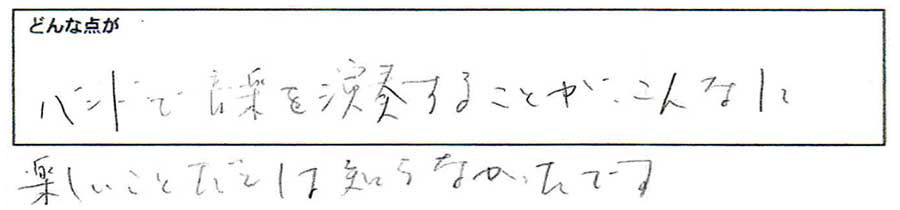 どんな点が
バンドで音楽を演奏することが、こんなに
楽しいことだとは知らなかったです